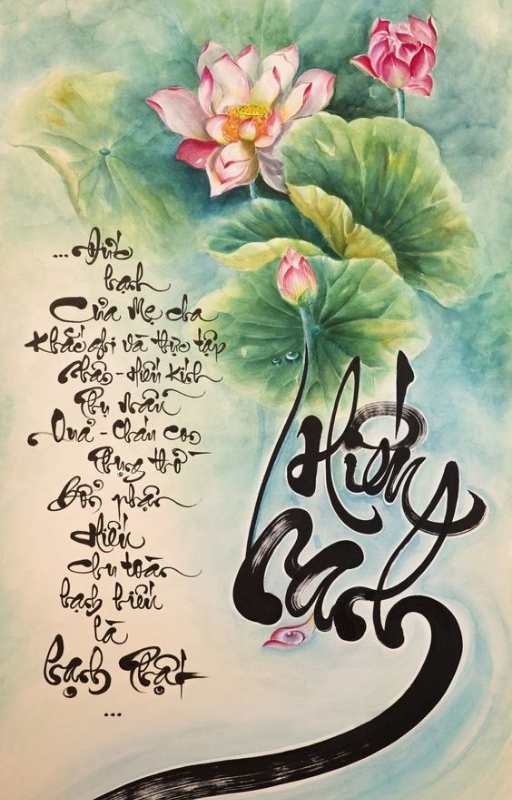 ... Đức
hạnh
Của Mẹ cha
Khắc ghi và thực tập
Thảo - Hiếu kính
Thụ nhân
Quả - Cháu con
Phụng thờ
Bổn phận
Hiếu
chu toàn
hạnh hiếu
là
hạnh Phật
...
Hiếu
Hạnh